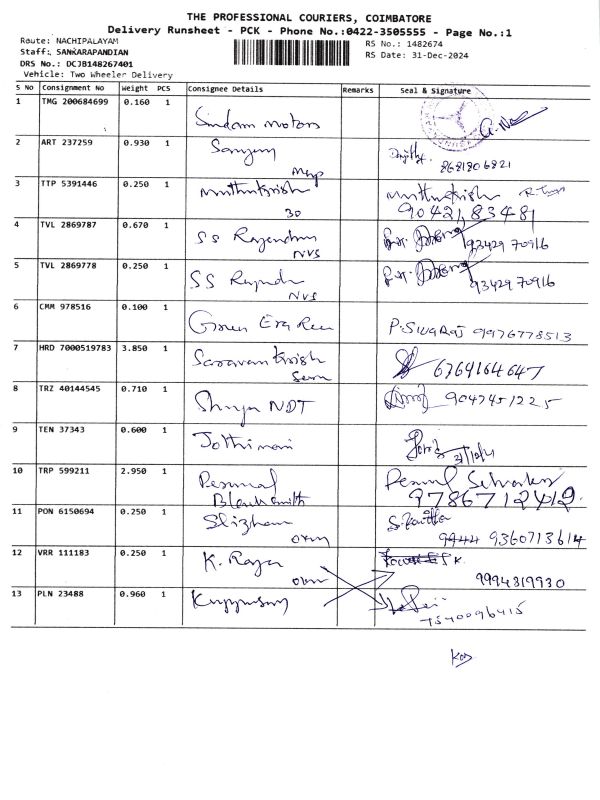 THE PROFESSIONAL COURIERS, COIMBATORE
Delivery Runsheet - PCK - Phone No.:0422-3505555 - Page No.:1
Route: NACHIPALAYAM
RS No.: 1482674
Staff: SANKARAPANDIAN
RS Date: 31-Dec-2024
DRS No.: DCJB148267401
Vehicle: Two Wheeler Delivery
S No Consignment No Weight PCS Consignee Details Remarks Seal & Signature
1 TMG 200684699 0.160 1 Sundam motors
2 ART 237259 0.930 1 8681806821
3 TTP 5391446 0.250 1 Muthukrish 30 Muthukrish 9042183481
4 TVL 2869787 0.670 1 SS Rajendran NVS 93429 70916
5 TVL 2869778 0.250 1 SS NVS 93429 70916
6 CMM 978516 0.100 1 Green Era P. SIVARAJ 9976778513
7 HRD 7000519783 3.850 1 Saravan Krish 6769164647
8 TRZ 40144545 0.710 1 NDT 9047451225
9 TEN 37343 0.600 1 Jothimani 31/12/21
10 TRP 599211 2.950 1 Perumal Blacksmith 9786712412
11 PON 6150694 0.250 1 9944 9360713614
12 VRR 111183 0.250 1 K. Raja 9994319930
13 PLN 23488 0.960 1 Kuppusamy 7540096415